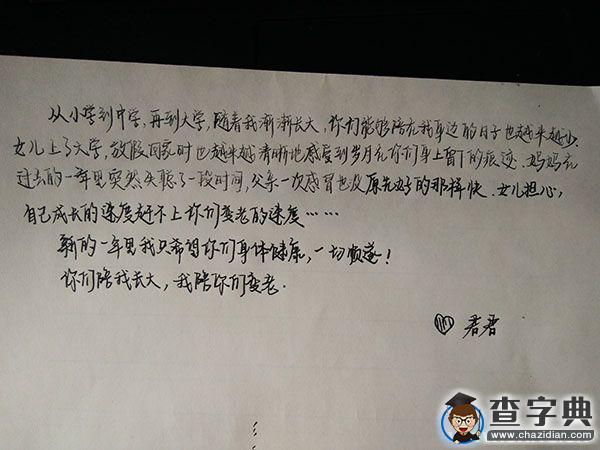 从小学到中学,再到大学,随着我渐渐长大,你们能够陪在我身边的日子也越来越少.
女儿上了大学,放假回家时也越来越清晰地感受到岁月在你们身上留下的痕迹.妈妈在
过去的一年里突然失聪了一段时间,父亲一次感冒也没原先好的那样快.女儿担心,
自己成长的速度赶不上你们变老的速度……
新的一年里我只希望你们身体健康,一切顺遂!
你们陪我长大,我陪你们变老.
君君
查字典
www.chazidian.com